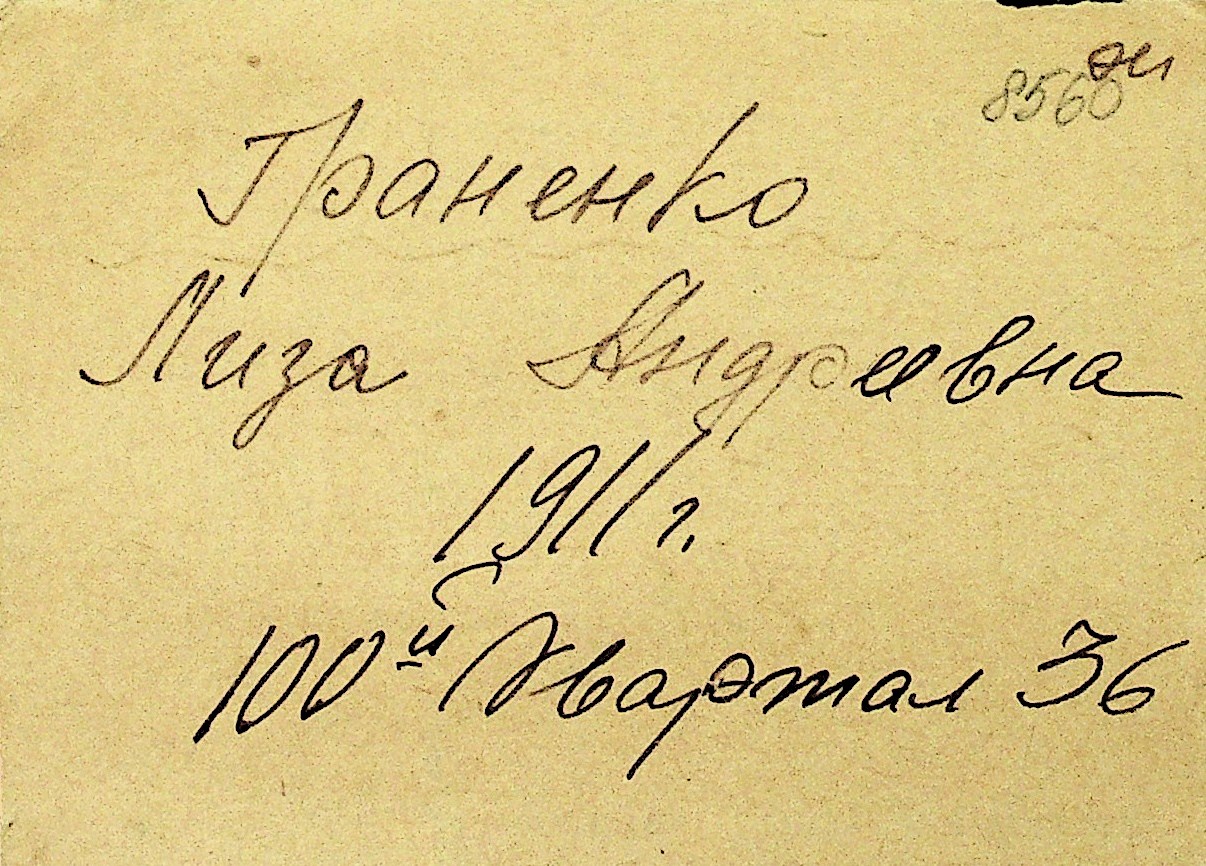 8560
Граненко
Лиза Андреевна
1911 г.
100й Квартал 36